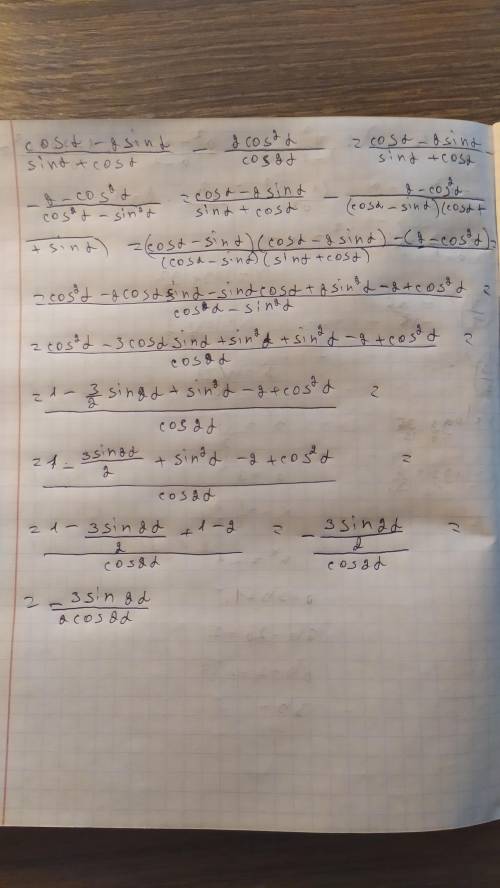 (cos α - 2 sin α)/(sin α + cos α) - (2 cos² α)/(cos 2α) = (cos α - 2 sin α)/(sin α + cos α) -
- (2 - cos² α)/(cos² α - sin² α) = (cos α - 2 sin α)/(sin α + cos α) - (2 - cos² α)/((cos α - sin α)(cos α +
+ sin α)) = ((cos α - sin α)(cos α - 2 sin α) - (2 - cos² α))/((cos α - sin α)(sin α + cos α)) =
= (cos² α - 2 cos α sin α - sin α cos α + 2 sin² α - 2 + cos² α)/(cos² α - sin² α) =
= (cos² α - 3 cos α sin α + sin² α + sin² α - 2 + cos² α)/(cos 2α) =
= (1 - 3/2 sin 2α + sin² α - 2 + cos² α)/(cos 2α) =
= (1 - (3 sin 2α)/2 + sin² α - 2 + cos² α)/(cos 2α) =
= (1 - (3 sin 2α)/2 + 1 - 2)/(cos 2α) = (- (3 sin 2α)/2)/(cos 2α) =
= - (3 sin 2α)/(2 cos 2α)